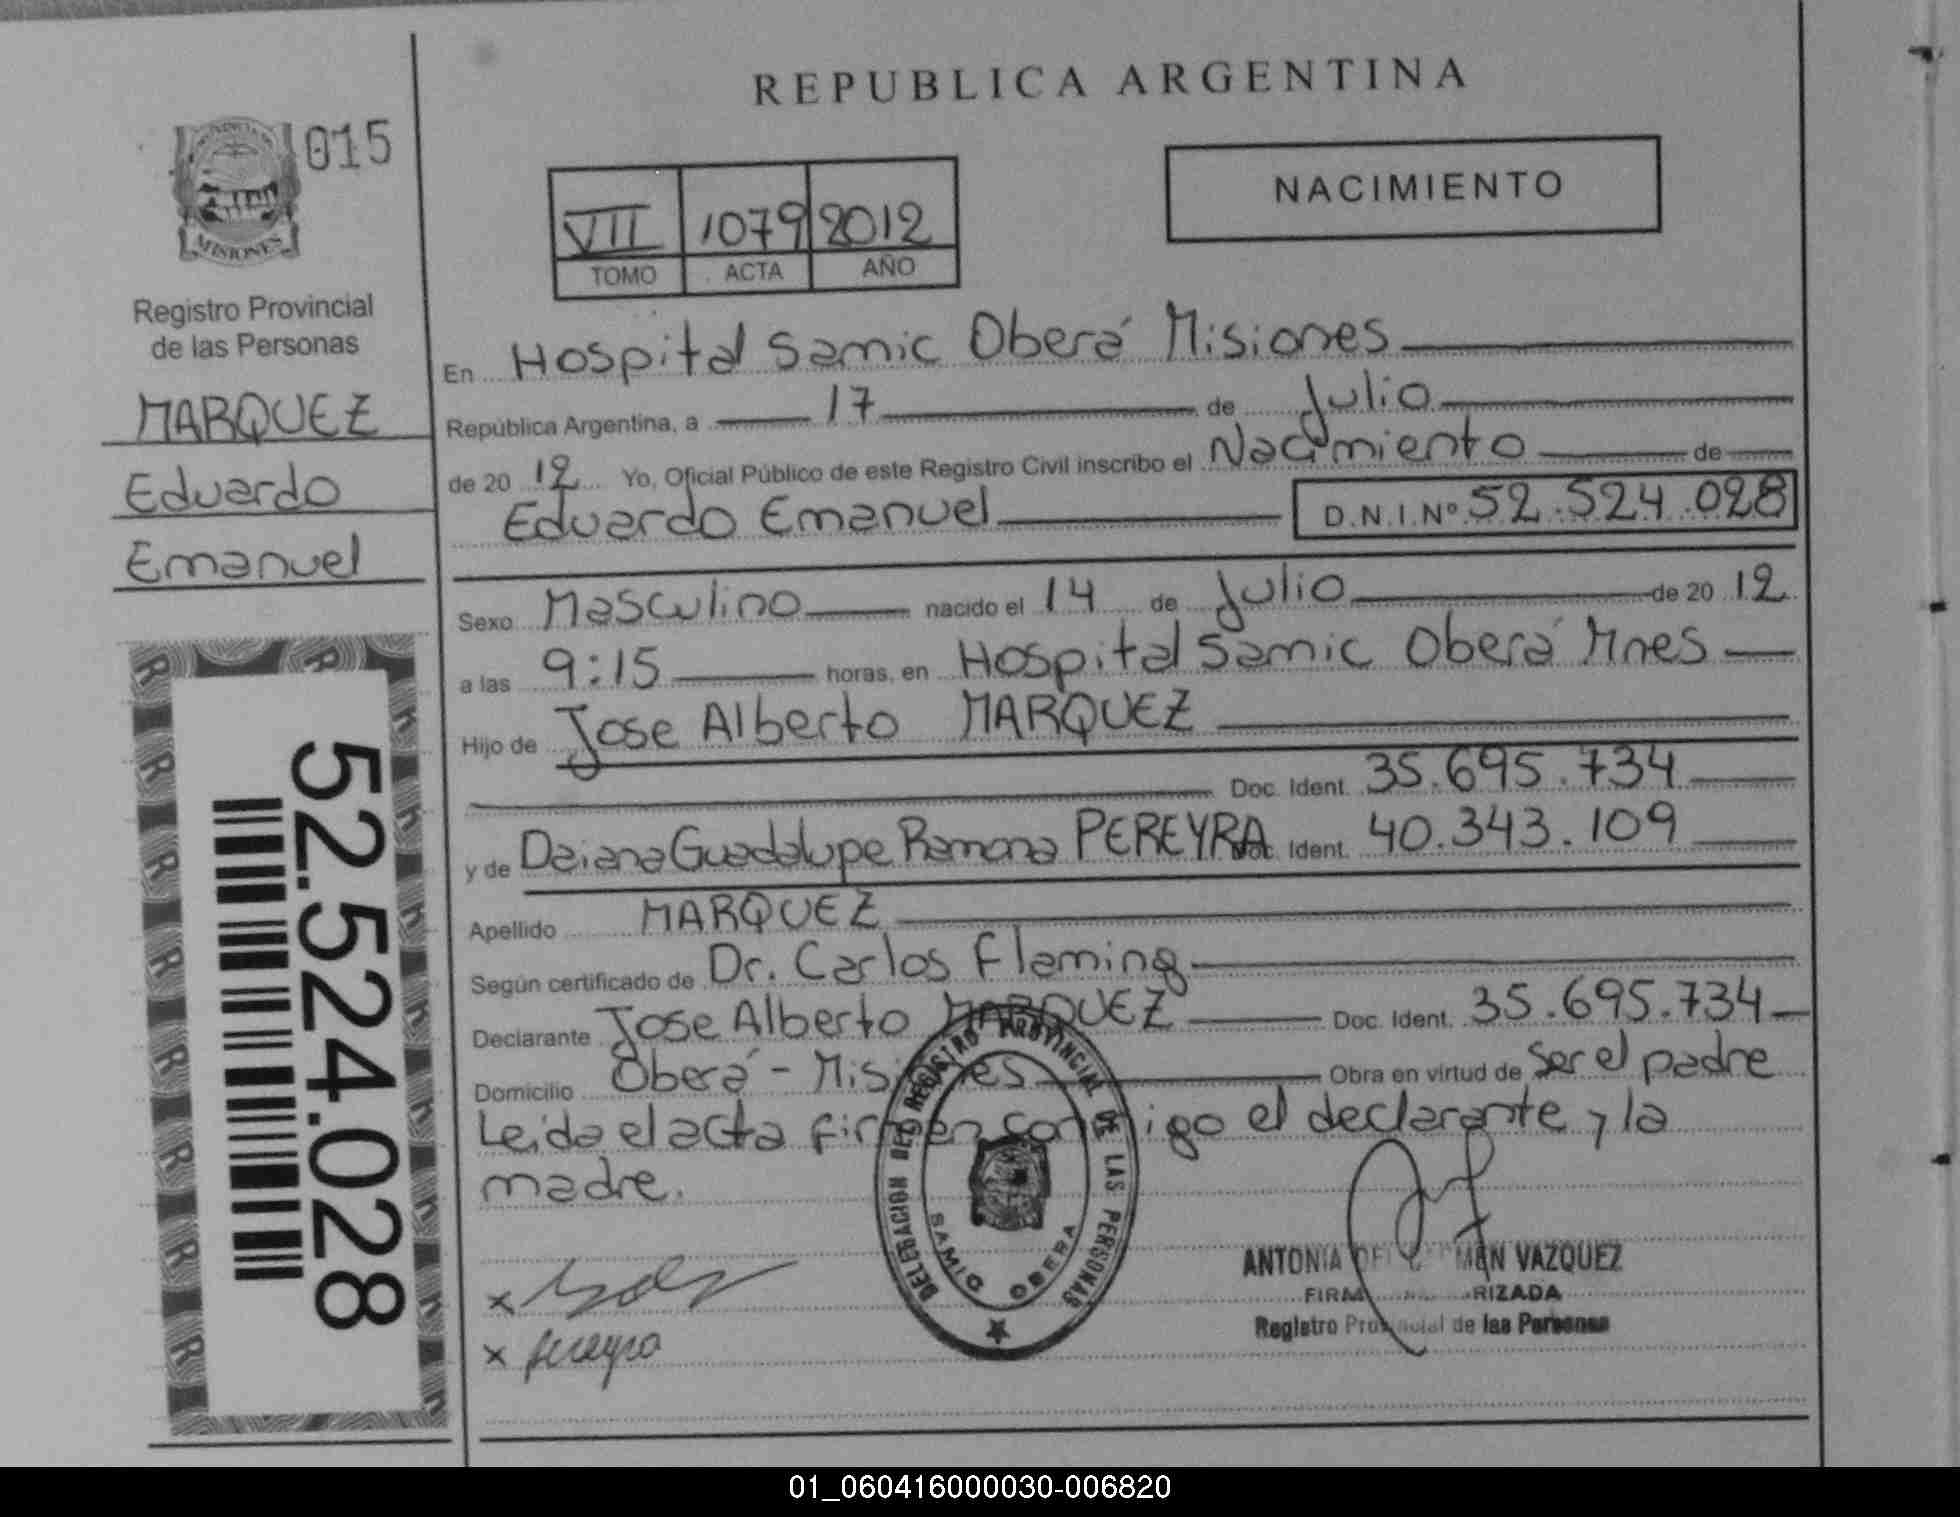 REPUBLICA ARGENTINA
015
NACIMIENTO
VII 1079 2012
TOMO ACTA AÑO
MISIONES
Registro Provincial
de las Personas
MARQUEZ
Eduardo
Emanuel
52.524.028
En Hospital Samic Oberá Misiones
República Argentina, a 17 de Julio
de 20 12 Yo, Oficial Público de este Registro Civil inscribo el Nacimiento de
Eduardo Emanuel D.N.I.Nº 52.524.028
Sexo Masculino nacido el 14 de Julio de 20 12
a las 9:15 horas, en Hospital Samic Oberá Mnes
Hijo de Jose Alberto MARQUEZ
Doc. Ident. 35.695.734
y de Daiana Guadalupe Ramona PEREYRA Doc. Ident. 40.343.109
Apellido MARQUEZ
Según certificado de Dr. Carlos Flaming
Declarante Jose Alberto MARQUEZ Doc. Ident. 35.695.734
Domicilio Oberá - Misiones Obra en virtud de Ser el padre
Leida el acta firman conmigo el declarante y la
madre.
DELEGACION DEL REGISTRO PROVINCIAL DE LAS PERSONAS
SAMIC OBERA
x
x Pereyra
ANTONIA DEL CARMEN VAZQUEZ
FIRMA AUTORIZADA
Registro Provincial de las Personas
01_060416000030-006820